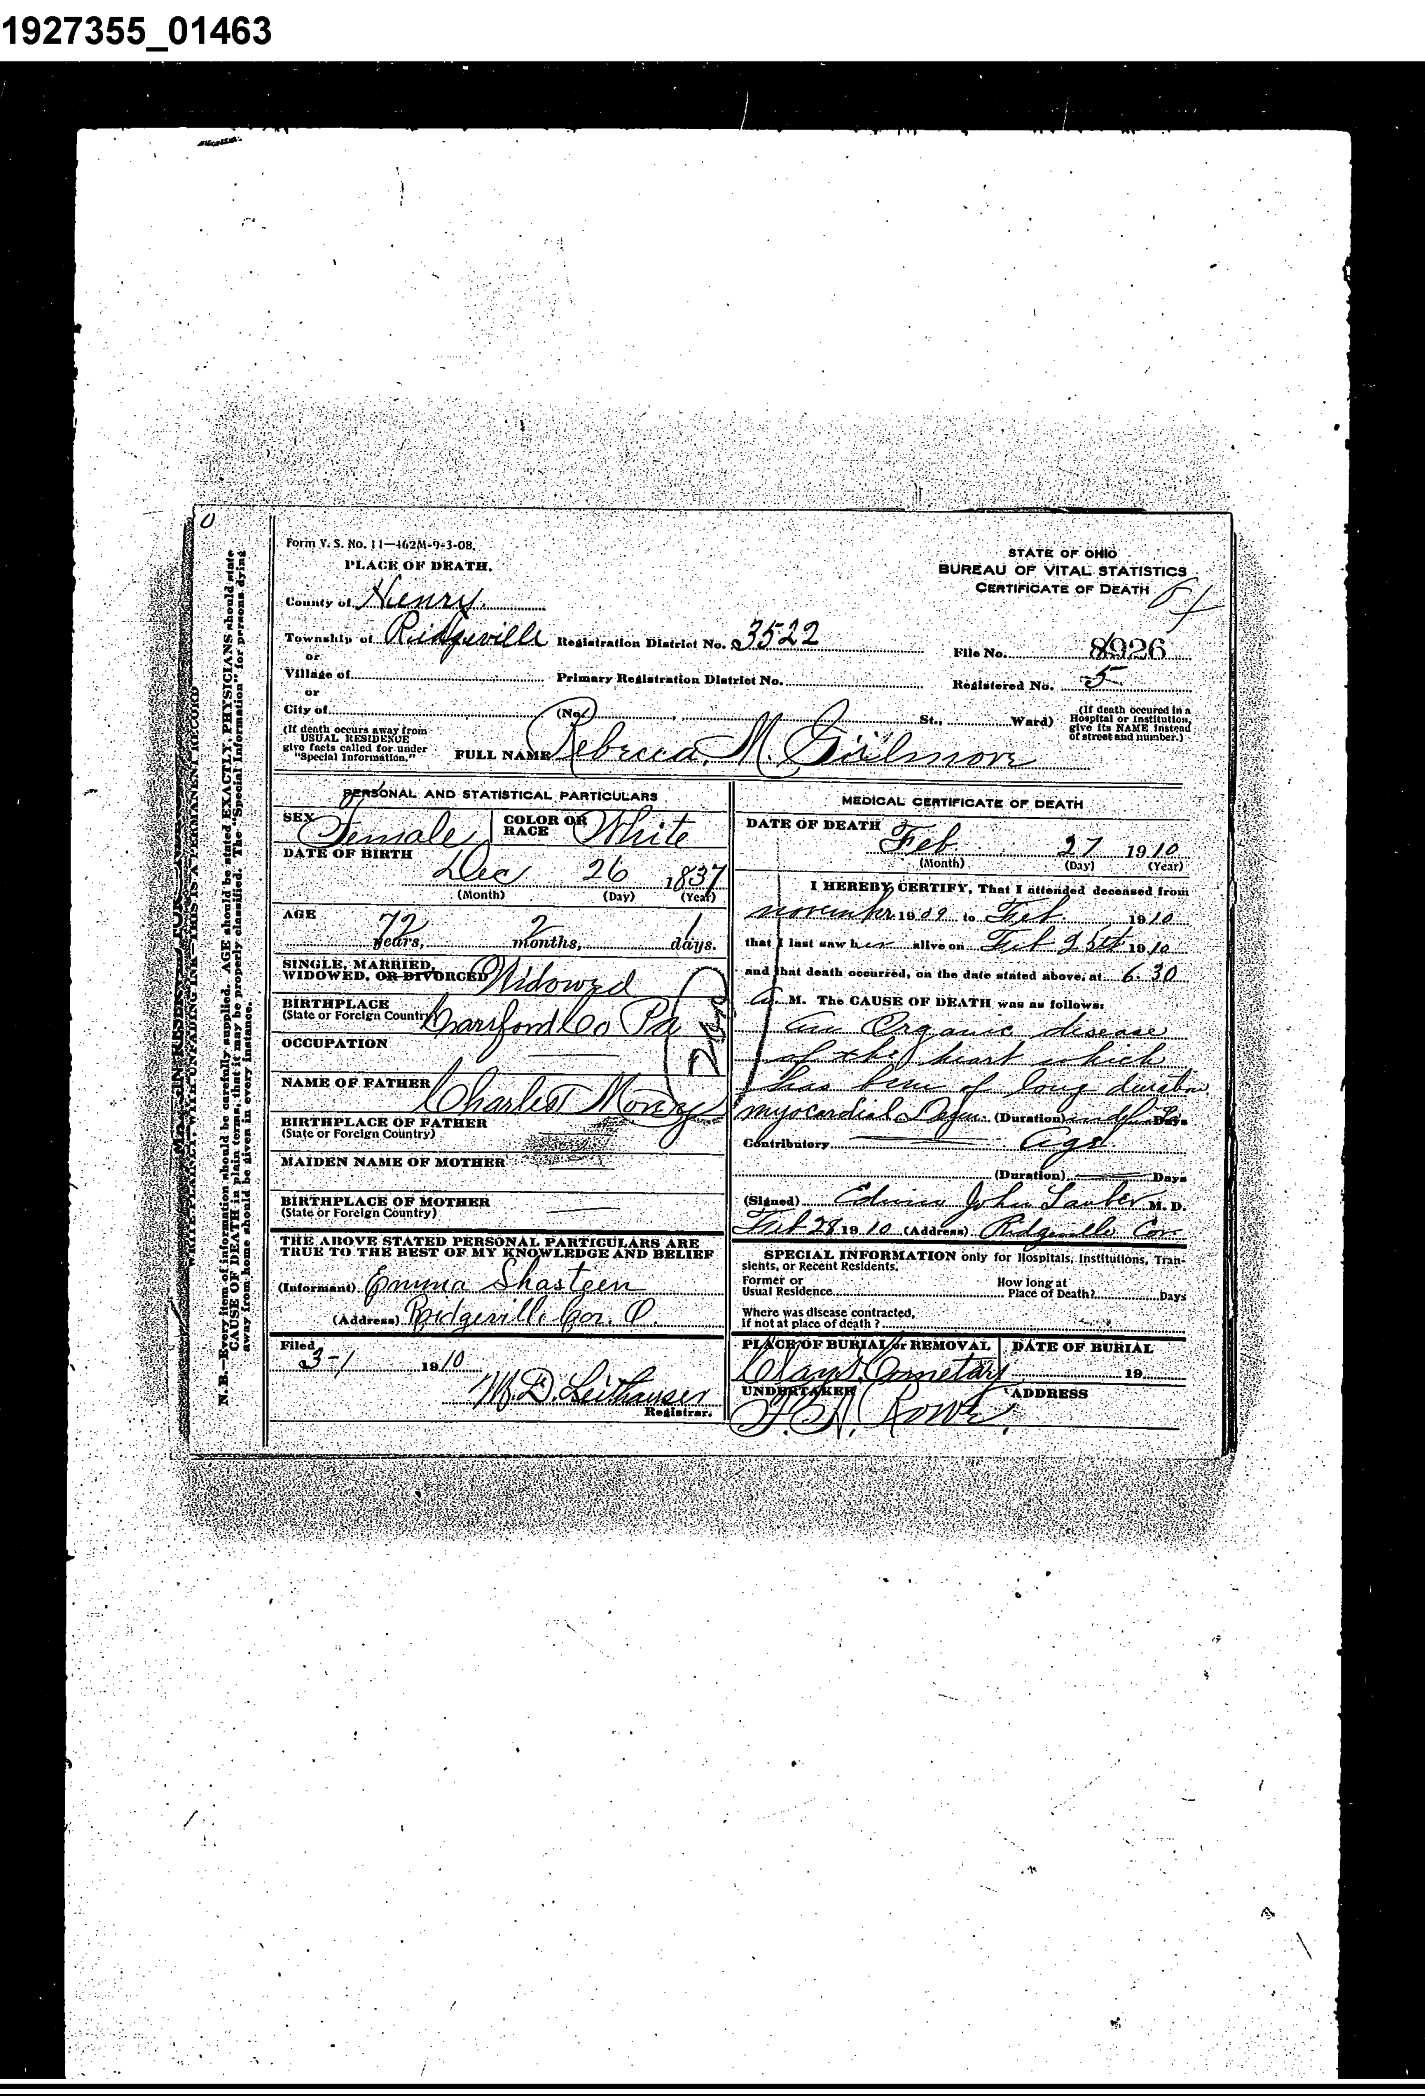 1927355_01463
Form V. S. No. 11—462M-9-3-08.
PLACE OF DEATH.
STATE OF OHIO
BUREAU OF VITAL STATISTICS
CERTIFICATE OF DEATH
County of Henry.
Township of Ridgeville Registration District No. 3522
File No. 8926
or
Village of Primary Registration District No.
Registered No. 5
or
City of (No. , St., Ward)
(If death occured in a
Hospital or Institution,
give its NAME instead
of street and number.)
(If death occurs away from
USUAL RESIDENCE
give facts called for under
"Special Information."
FULL NAME Rebecca. M. Gillmore
PERSONAL AND STATISTICAL PARTICULARS
SEX Female
COLOR OR
RACE White
DATE OF BIRTH
Dec 26 1837
(Month) (Day) (Year)
AGE
72 years, 2 months, 1 days.
SINGLE, MARRIED,
WIDOWED, OR DIVORCED Widowed
BIRTHPLACE
(State or Foreign Country) Co Pa
OCCUPATION
NAME OF FATHER Charles
BIRTHPLACE OF FATHER
(State or Foreign Country)
MAIDEN NAME OF MOTHER
BIRTHPLACE OF MOTHER
(State or Foreign Country)
THE ABOVE STATED PERSONAL PARTICULARS ARE
TRUE TO THE BEST OF MY KNOWLEDGE AND BELIEF
(Informant) Emma Shasteen
(Address) Ridgeville Cor. O.
Filed
3-1 1910
M. D. Leithauser
Registrar.
MEDICAL CERTIFICATE OF DEATH
DATE OF DEATH
Feb 27 1910
(Month) (Day) (Year)
I HEREBY CERTIFY, That I attended deceased from
November 1909 to Feb 1910
that I last saw her alive on Feb 25th 1910
and that death occurred, on the date stated above, at 6.30
a. M. The CAUSE OF DEATH was as follows:
An Organic disease
of the heart which
has been of long duration
myocardial Degen. (Duration) Days
Contributory Age
(Duration) Days
(Signed) Edwin John Lauber M. D.
Feb 28 1910 (Address) Ridgeville Cor.
SPECIAL INFORMATION only for Hospitals, Institutions, Tran-
sients, or Recent Residents.
Former or
Usual Residence
How long at
Place of Death? Days
Where was disease contracted,
If not at place of death?
PLACE OF BURIAL or REMOVAL
Cemetary
DATE OF BURIAL
19
UNDERTAKER
F. A. Rowe.
ADDRESS
WRITE PLAINLY, WITH UNFADING INK—THIS IS A PERMANENT RECORD
N. B.—Every item of information should be carefully supplied. AGE should be stated EXACTLY. PHYSICIANS should state
CAUSE OF DEATH in plain terms, that it may be properly classified. The "Special Information" for persons dying
away from home should be given in every instance.